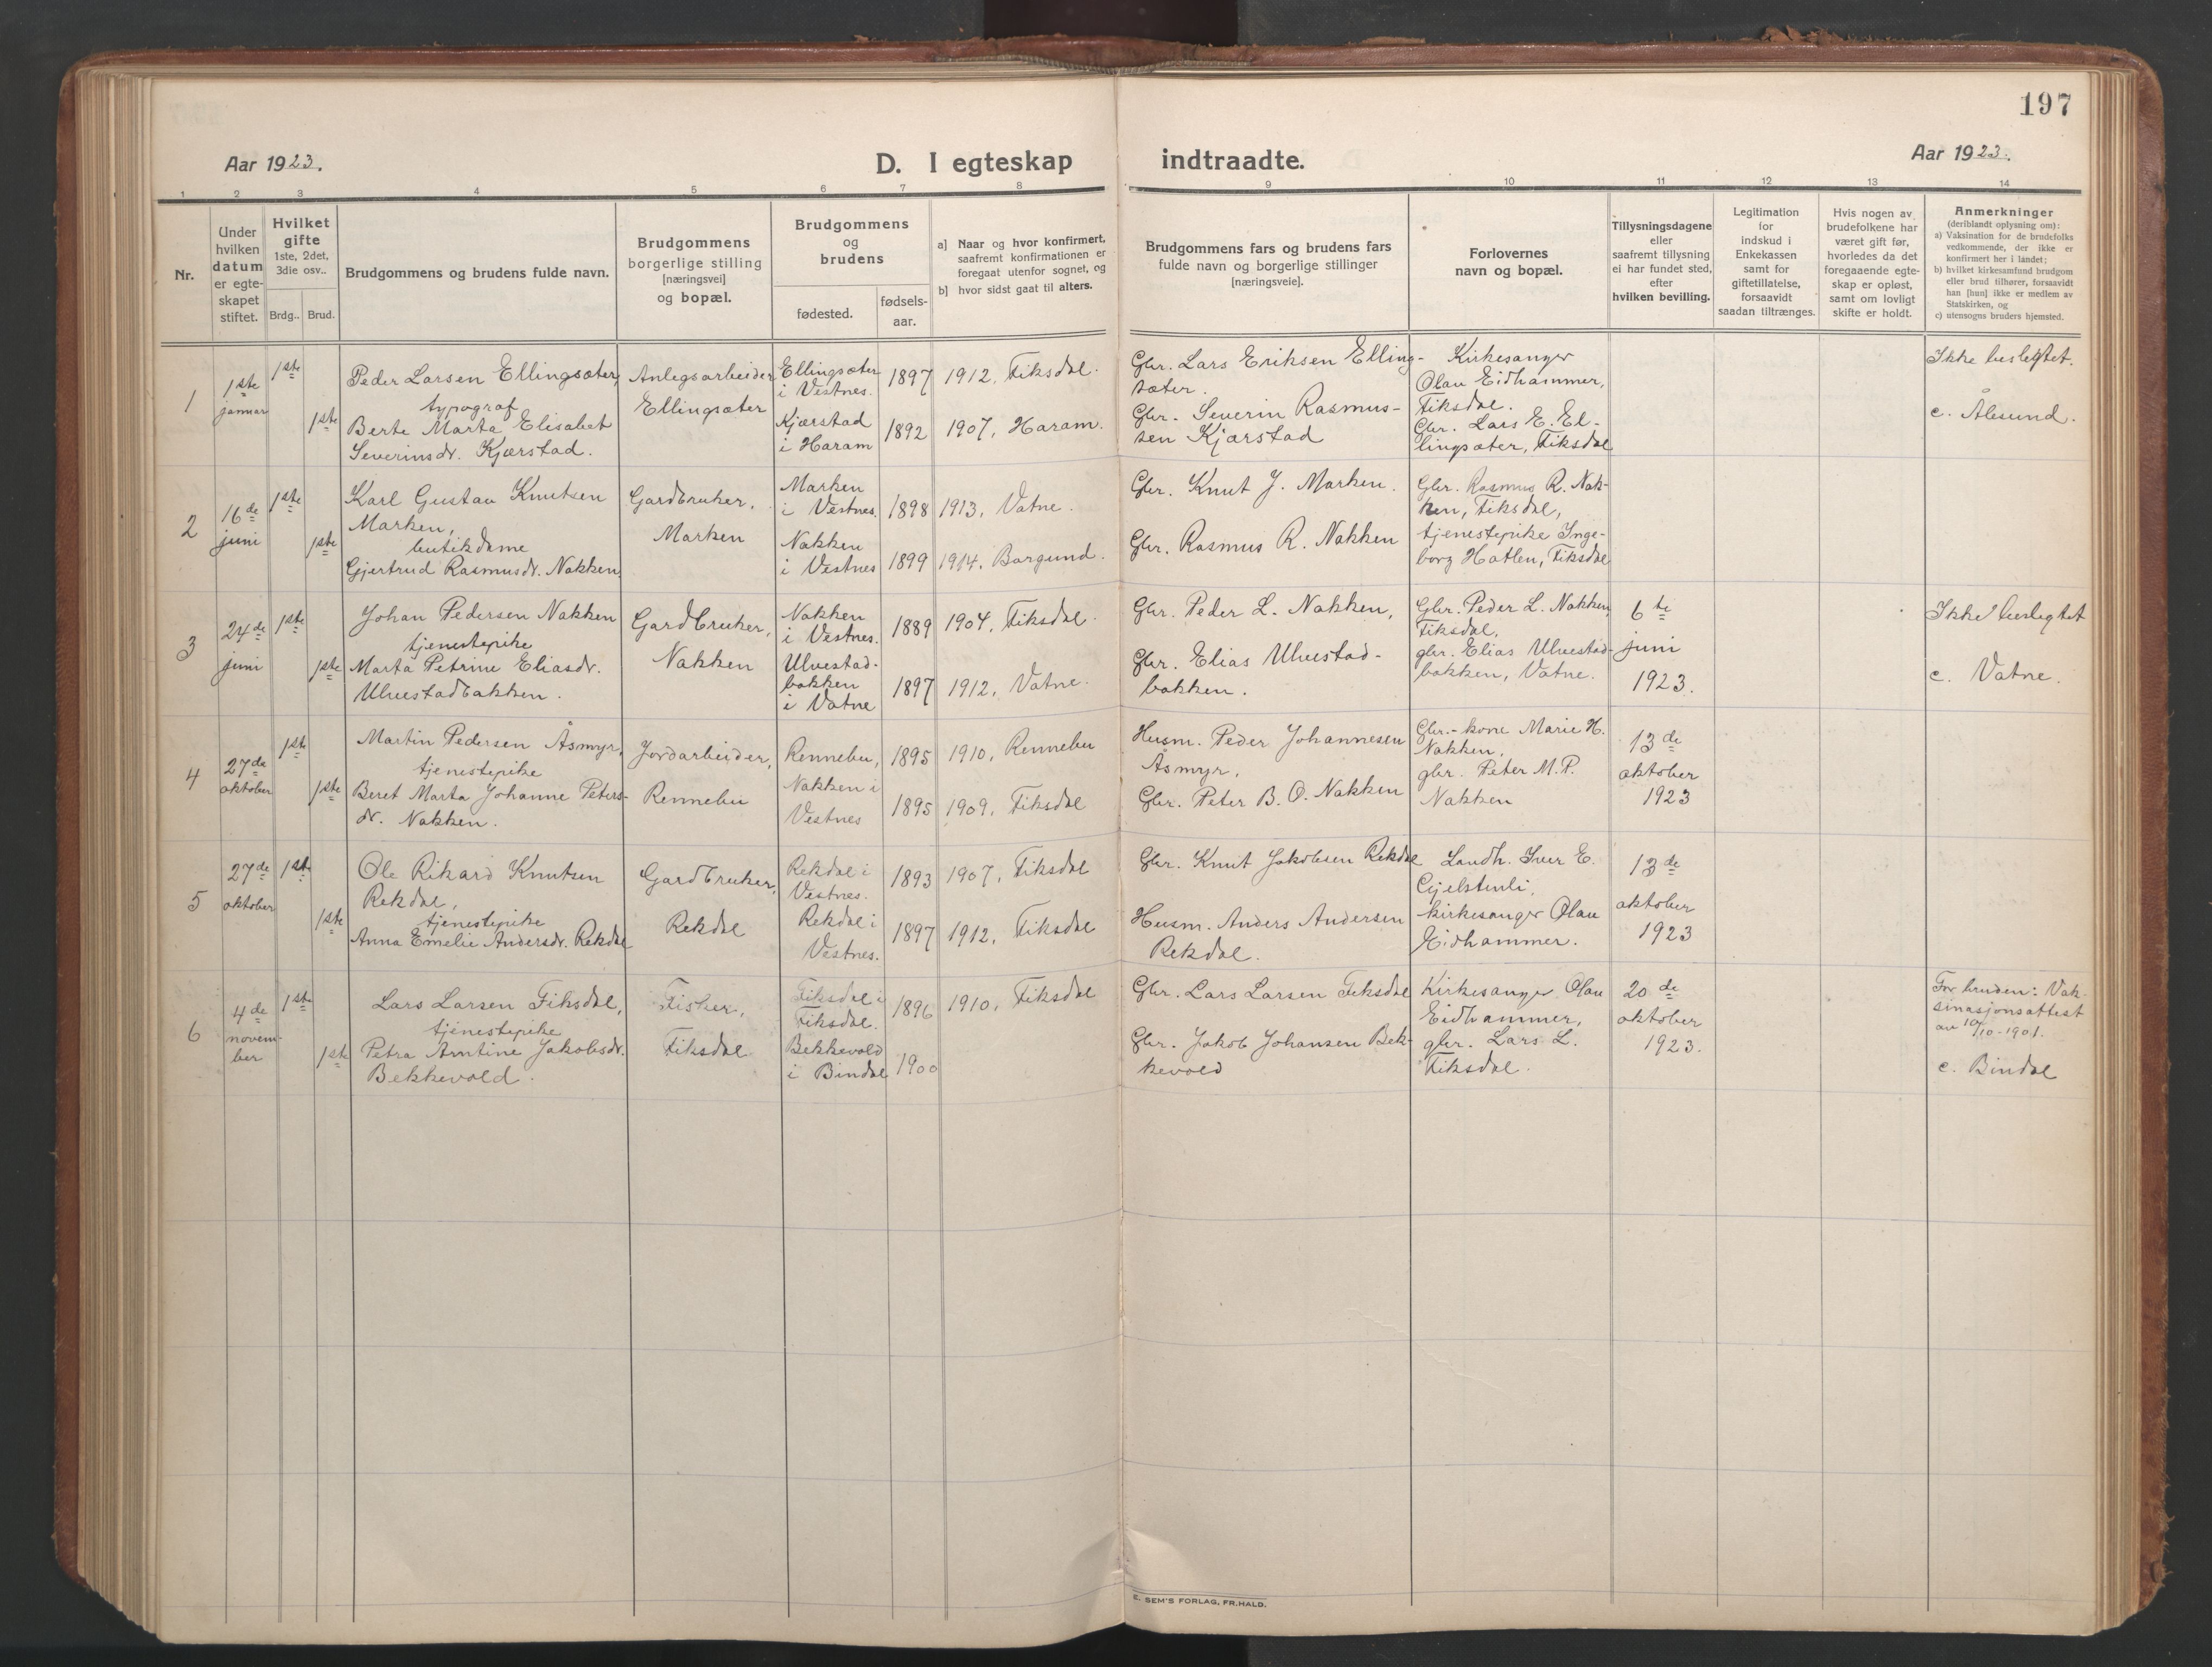 197
Aar 1923.
D. I egteskap indtraadte.
Aar 1923.
1 2 3 4 5 6 7 8 9 10 11 12 13 14
Nr.
Under
hvilken
datum
er egte-
skapet
stiftet.
Hvilket
gifte
1ste, 2det,
3die osv..
Brdg.. Brud.
Brudgommens og brudens fulde navn.
Brudgommens
borgerlige stilling
[næringsvei]
og bopæl.
Brudgommens
og
brudens
fødested.
fødsels-
aar.
a] Naar og hvor konfirmert,
saafremt konfirmationen er
foregaat utenfor sognet, og
b] hvor sidst gaat til alters.
Brudgommens fars og brudens fars
fulde navn og borgerlige stillinger
[næringsveie].
Forlovernes
navn og bopæl.
Tillysningsdagene
eller
saafremt tillysning
ei har fundet sted,
efter
hvilken bevilling.
Legitimation
for
indskud i
Enkekassen
samt for
giftetillatelse,
forsaavidt
saadan tiltrænges.
Hvis nogen av
brudefolkene har
været gift før,
hvorledes da det
foregaaende egte-
skap er opløst,
samt om lovligt
skifte er holdt.
Anmerkninger
(deriblandt oplysning om):
a) Vaksination for de brudefolks
vedkommende, der ikke er
konfirmert her i landet;
b) hvilket kirkesamfund brudgom
eller brud tilhører, forsaavidt
han [hun] ikke er medlem av
Statskirken, og
c) utensogns bruders hjemsted.
1
1ste
januar
1ste
1ste
Peder Larsen Ellingsæter,
typograf
Berte Marta Elisabet
Severinsdr. Kjærstad.
Anlegsarbeider
Ellingsæter
Ellingsæter
i Vestnes.
Kjærstad
i Haram
1897
1892
1912, Fiksdal.
1907, Haram.
Gbr. Lars Eriksen Elling-
sæter.
Gbr. Severin Rasmus-
sen Kjærstad
Kirkesanger
Olau Eidhammer,
Fiksdal.
Gbr. Lars E. El-
lingsæter, Fiksdal
Ikke beslegtet.
c. Ålesund.
2
16de
juni
1ste
1ste
Karl Gustav Knutsen
Marken,
butikdame
Gjertrud Rasmusdr. Nakken.
Gardbruker,
Marken
Marken
i Vestnes.
Nakken
i Vestnes
1898
1899
1913, Vatne.
1914, Borgund.
Gbr. Knut J. Marken.
Gbr. Rasmus R. Nakken
Gbr. Rasmus R. Nak-
ken, Fiksdal,
tjenestepike Inge-
borg Hatlen, Fiksdal
3
24de
juni
1ste
1ste
Johan Pedersen Nakken
tjenestepike
Marta Petrine Eliasdr.
Ulvestadbakken.
Gardbruker,
Nakken
Nakken
i Vestnes.
Ulvestad-
bakken
i Vatne
1889
1897
1904, Fiksdal.
1912, Vatne.
Gbr. Peder L. Nakken,
Gbr. Elias Ulvestad-
bakken.
Gbr. Peder L. Nakken,
Fiksdal,
gbr. Elias Ulvestad-
bakken, Vatne.
6te
juni
1923.
Ikke beslegtet
c. Vatne.
4
27de
oktober
1ste
1ste
Martin Pedersen Åsmyr,
tjenestepike
Beret Marta Johanne Peters-
dr. Nakken.
Jordarbeider,
Rennebu
Rennebu,
Nakken i
Vestnes
1895
1895
1910, Rennebu
1909, Fiksdal
Husm. Peder Johannesen
Åsmyr,
Gbr. Peter B. O. Nakken
Gbr.-kone Marie H.
Nakken,
gbr. Peter M. P.
Nakken
13de
oktober
1923
5
27de
oktober
1ste
1ste
Ole Rikard Knutsen
Rekdal,
tjenestepike
Anna Emelie Andersdr. Rekdal
Gardbruker,
Rekdal
Rekdal i
Vestnes.
Rekdal i
Vestnes.
1893
1897
1907, Fiksdal
1912, Fiksdal
Gbr. Knut Jakobsen Rekdal
Husm. Anders Andersen
Rekdal.
Landh. Iver E.
Gjelstenli,
kirkesanger Olau
Eidhammer.
13de
oktober
1923
6
4de
novem-
ber
1ste
1ste
Lars Larsen Fiksdal,
tjenestepike
Petra Arntine Jakobsdr.
Bekkevold.
Fisker,
Fiksdal
Fiksdal i
Fiksdal.
Bekkevold
i Bindal
1896
1900
1910, Fiksdal
Gbr. Lars Larsen Fiksdal
Gbr. Jakob Johansen Bek-
kevold
Kirkesanger Olau
Eidhammer,
gbr. Lars L.
Fiksdal.
20de
oktober
1923.
For bruden: Vak-
sinasjonsattest
av 10/10-1901.
c. Bindal
E. SEM'S FORLAG, FR.HALD.